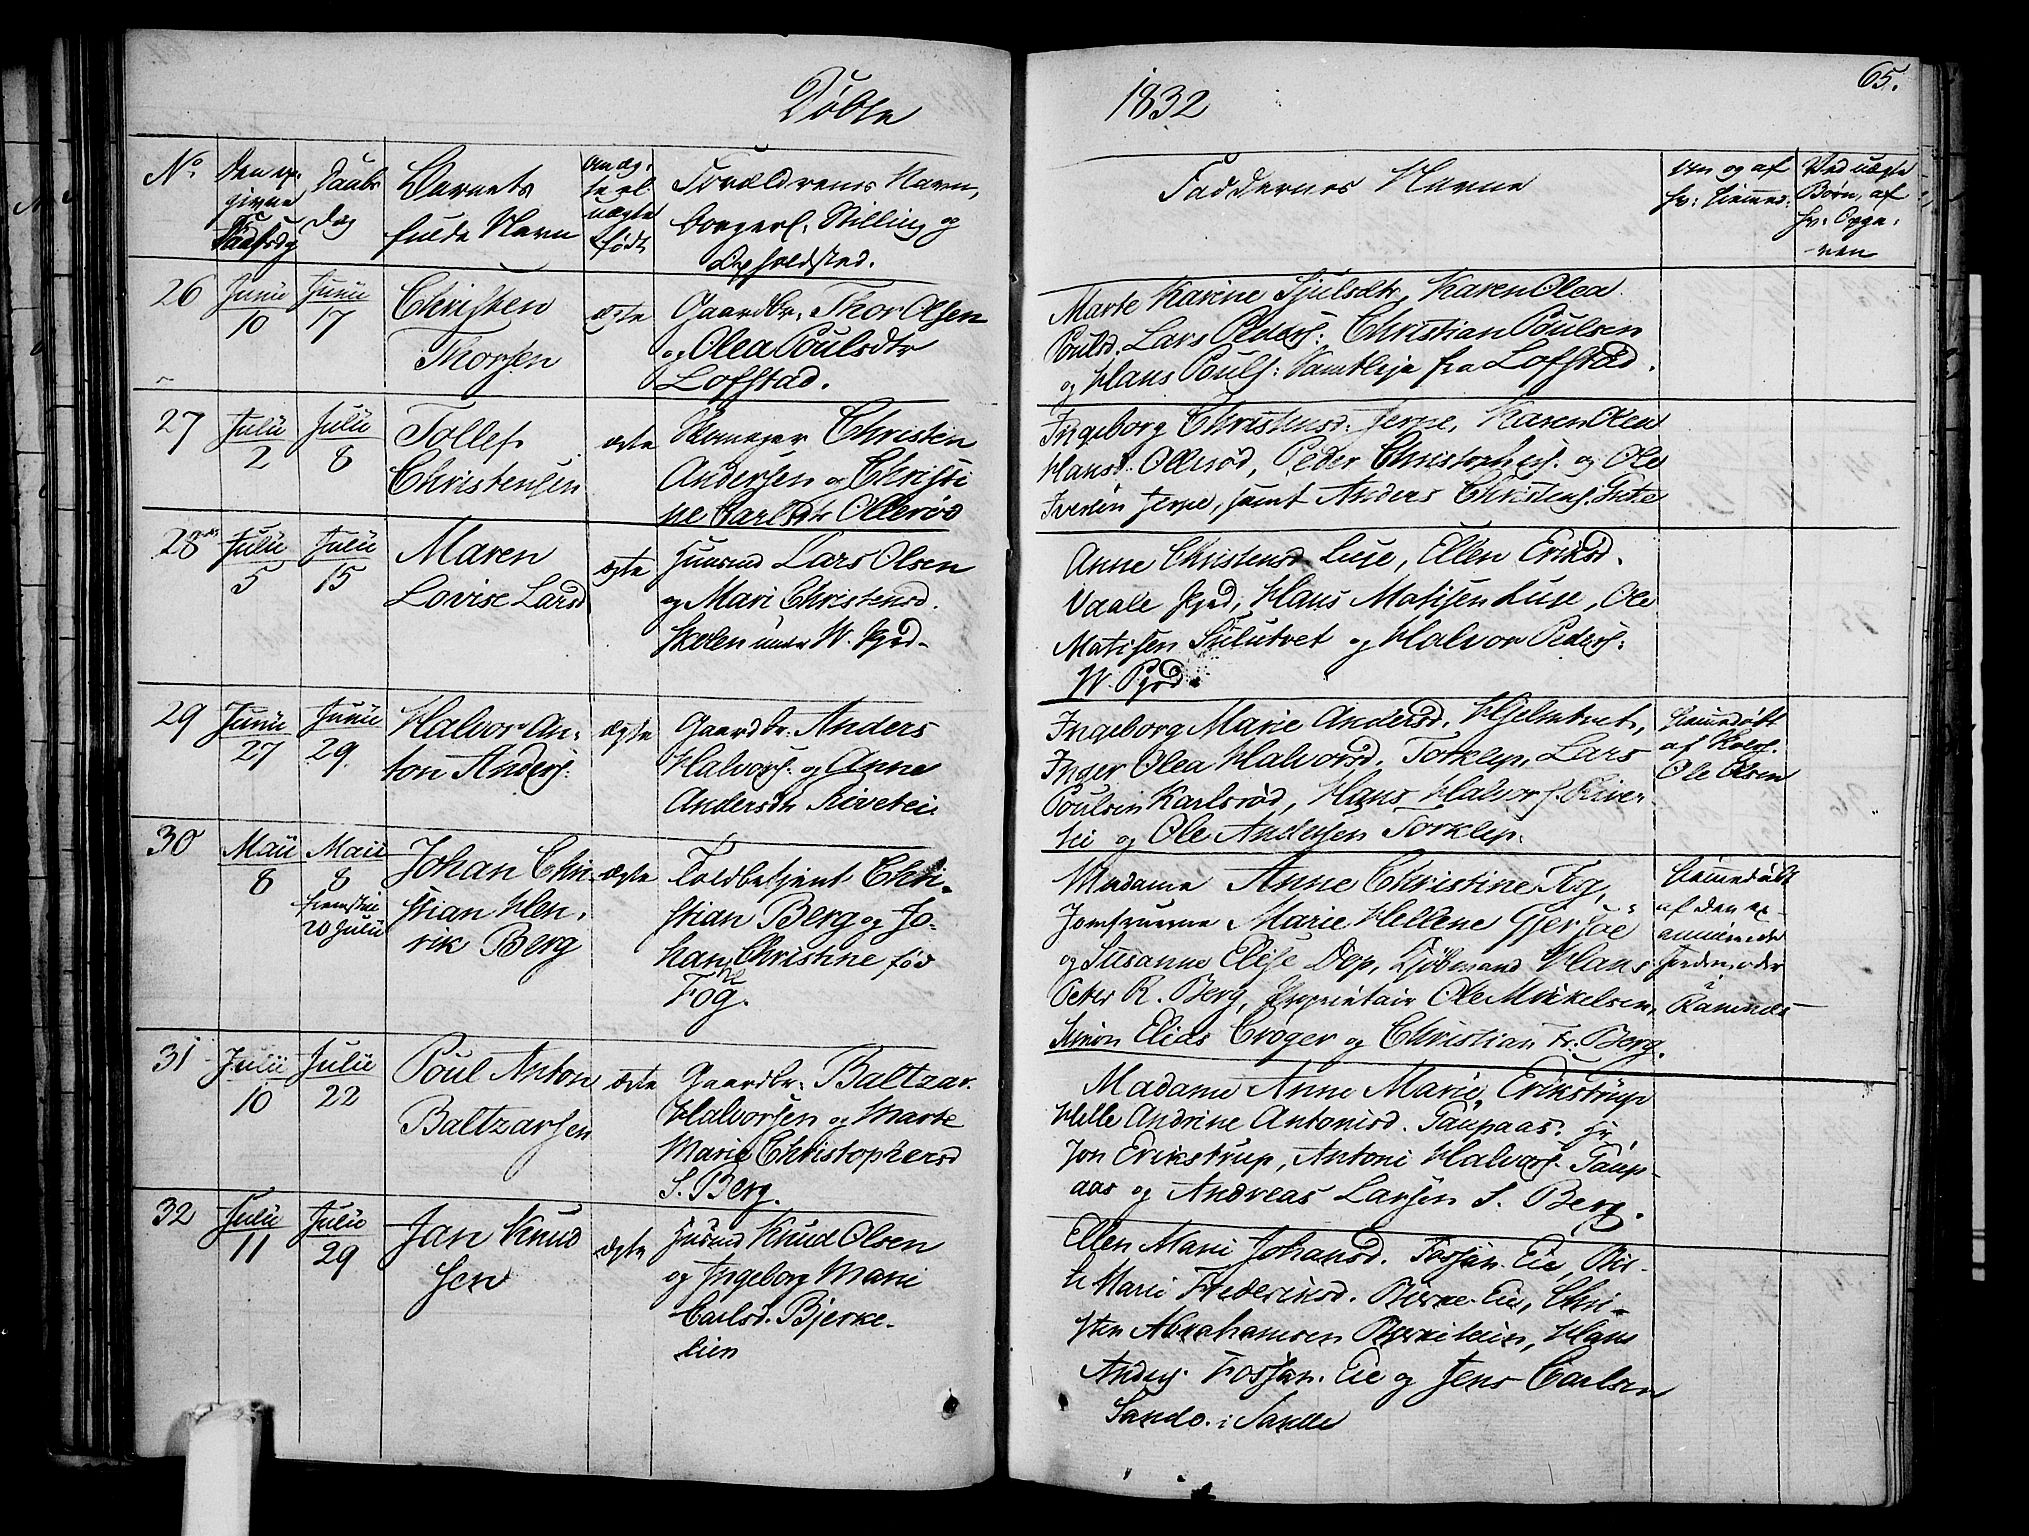 Døbte
1832
65.
No.
Den op-
givne
Daab
Dag
Barnets
fulde Navn
om æg-
te el.
uægte
født
Forældrenes Navn,
borgerl. Stilling og
Opholdsted.
Faddernes Navne
om og af
hv: hiemmed:
Ved uægte
Børn, af
hv: Opga-
ven
26
Junii
10
Junii
17
Christen
Thorsen
ægte
Gaardbr. Thor Olsen
og Olea Poulsdtr
Lofstad.
Marte Karine Sjulsdtr, Karen Olea
Poulsd. Lars Peders: Christian Poulsen
og Hans Pouls: samtlige fra Lofstad.
27
Julii
2
Julii
8
Tollef
Christensen
ægte
Christen
Andersen og Christi
ne Carlsdtr Ollerød
Ingeborg Christensd. Jerpe, Karen Olea
Hansd. Ollerød, Peder Christophers. og Ole
Iversen Jerpe, samt Anders Christens.
28
Julii
5
Julii
15
Maren
Lovise Larsd
ægte
Huusmd Lars Olsen
og Mari Christensd.
Skolen under W. Pjød-
Anne Christensd Luse, Ellen Eriksd.
Vaale Hans Matisen Luse, Ole
Matisen og Halvor Peders:
W. Pjød
29
Junii
27
Junii
29.
Halvor An-
ton Anders:
ægte
Gaardbr. Anders
Halvors: og Anne
Andersdtr
Ingeborg Marie Andersd. Hjelmtvet,
Inger Olea Halvorsd. Torklep, Lars
Poulsen Karlsrød, Hans Halvors.
og Ole Andersen Torklep.
hiemedøbt
af
Ole Olsen
30
Maii
8
Maii
8
fremstil
20 Julii
Johan Chri-
stian Hen-
rik Berg
ægte
Toldbetjent Chri-
stian Berg og Jo-
hanne Christine, fød
Fog.
Madame Anne Christine Fog,
Jomfruerne Marie Hellene Gjersøe
og Susanne Elise Dep, Kjøbmand Hans
Peter K. Berg, Proprietair Ole Mikkelsen,
Simon Elias Croger og Christian Fr. Berg.
hiemmedøbt
af den ex-
aminerede
Jordemoder
Ramnæs
31
Julii
10
Julii
22
Poul Anton
Baltzarsen
ægte
Gaardbr. Baltzar
Halvorsen og Marte
Marie Christophersd
S. Berg.
Madame Anne Marie Erikstrup
Helle Andrine Antonisd. Taupaas. Hr
Jon Erikstrup, Antoni Halvors. Taup-
aas og Andreas Larsen S. Berg.
32
Julii
11
Julii
29
Jan Knud
sen
ægte
Husmd Knud Olsen
og Ingeborg Marie
Carlsd. Bjerke-
eien
Ellen Marie Johansd. Fossan. Eie, Bir-
te Marie Frederiksd. Bjerke. Eie, Chri-
sten Abrahamsen Hans
Anders. Fossan. Eie og Jens Carlsen
Sando. i Sande